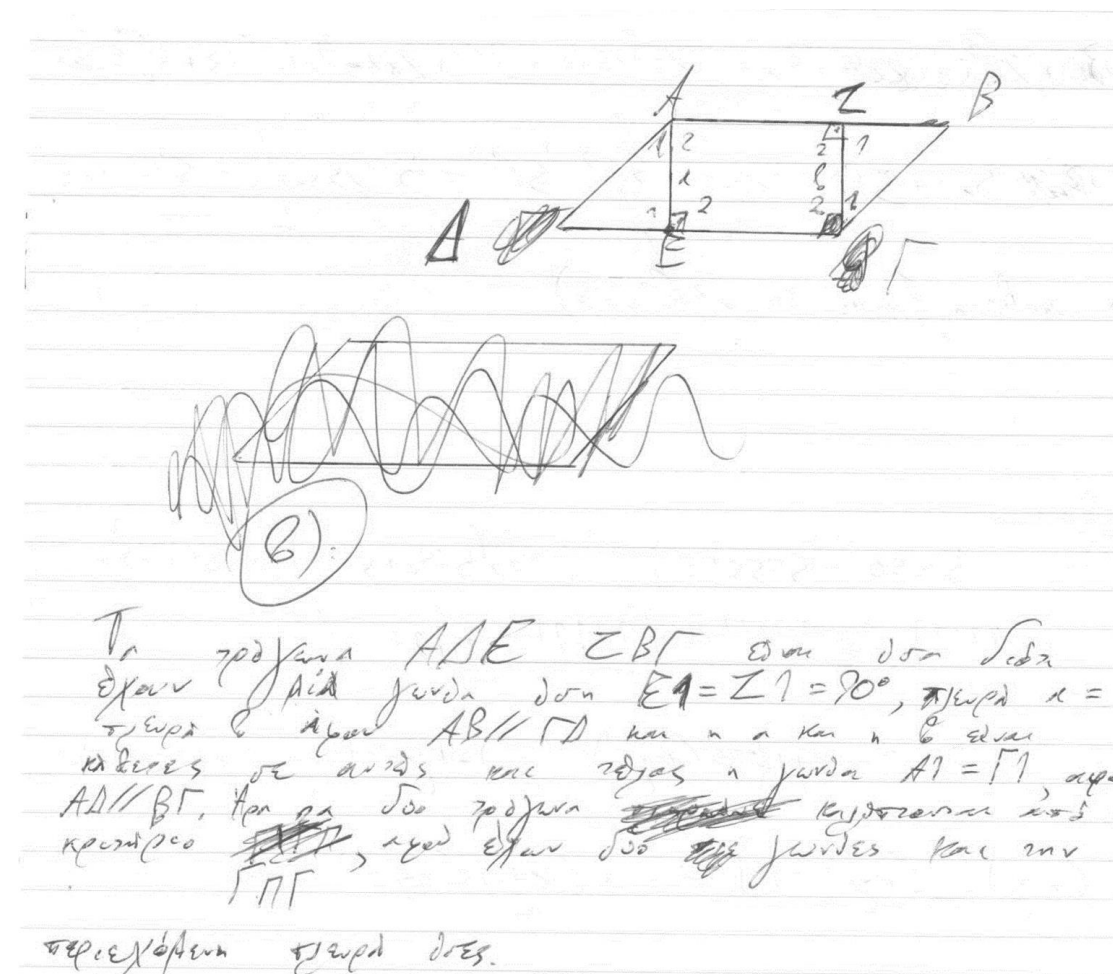 Α Ζ Β
1 2 2 1
α β
1 2 2 1
Δ Ε Γ
β)
Τα τρίγωνα ΑΔΕ ΖΒΓ είναι ίσα διότι
έχουν μία γωνία ίση Ε1 = Ζ1 = 90°, πλευρά α =
πλευρά β αφού ΑΒ//ΓΔ και η α και η β είναι
κάθετες σε αυτές και τέλος η γωνία Α1 = Γ1, αφού
ΑΔ//ΒΓ. Άρα τα δύο τρίγωνα καλύπτονται από
κριτήριο , αφού έχουν δύο γωνίες και την
ΓΠΓ
περιεχόμενη πλευρά ίσες.